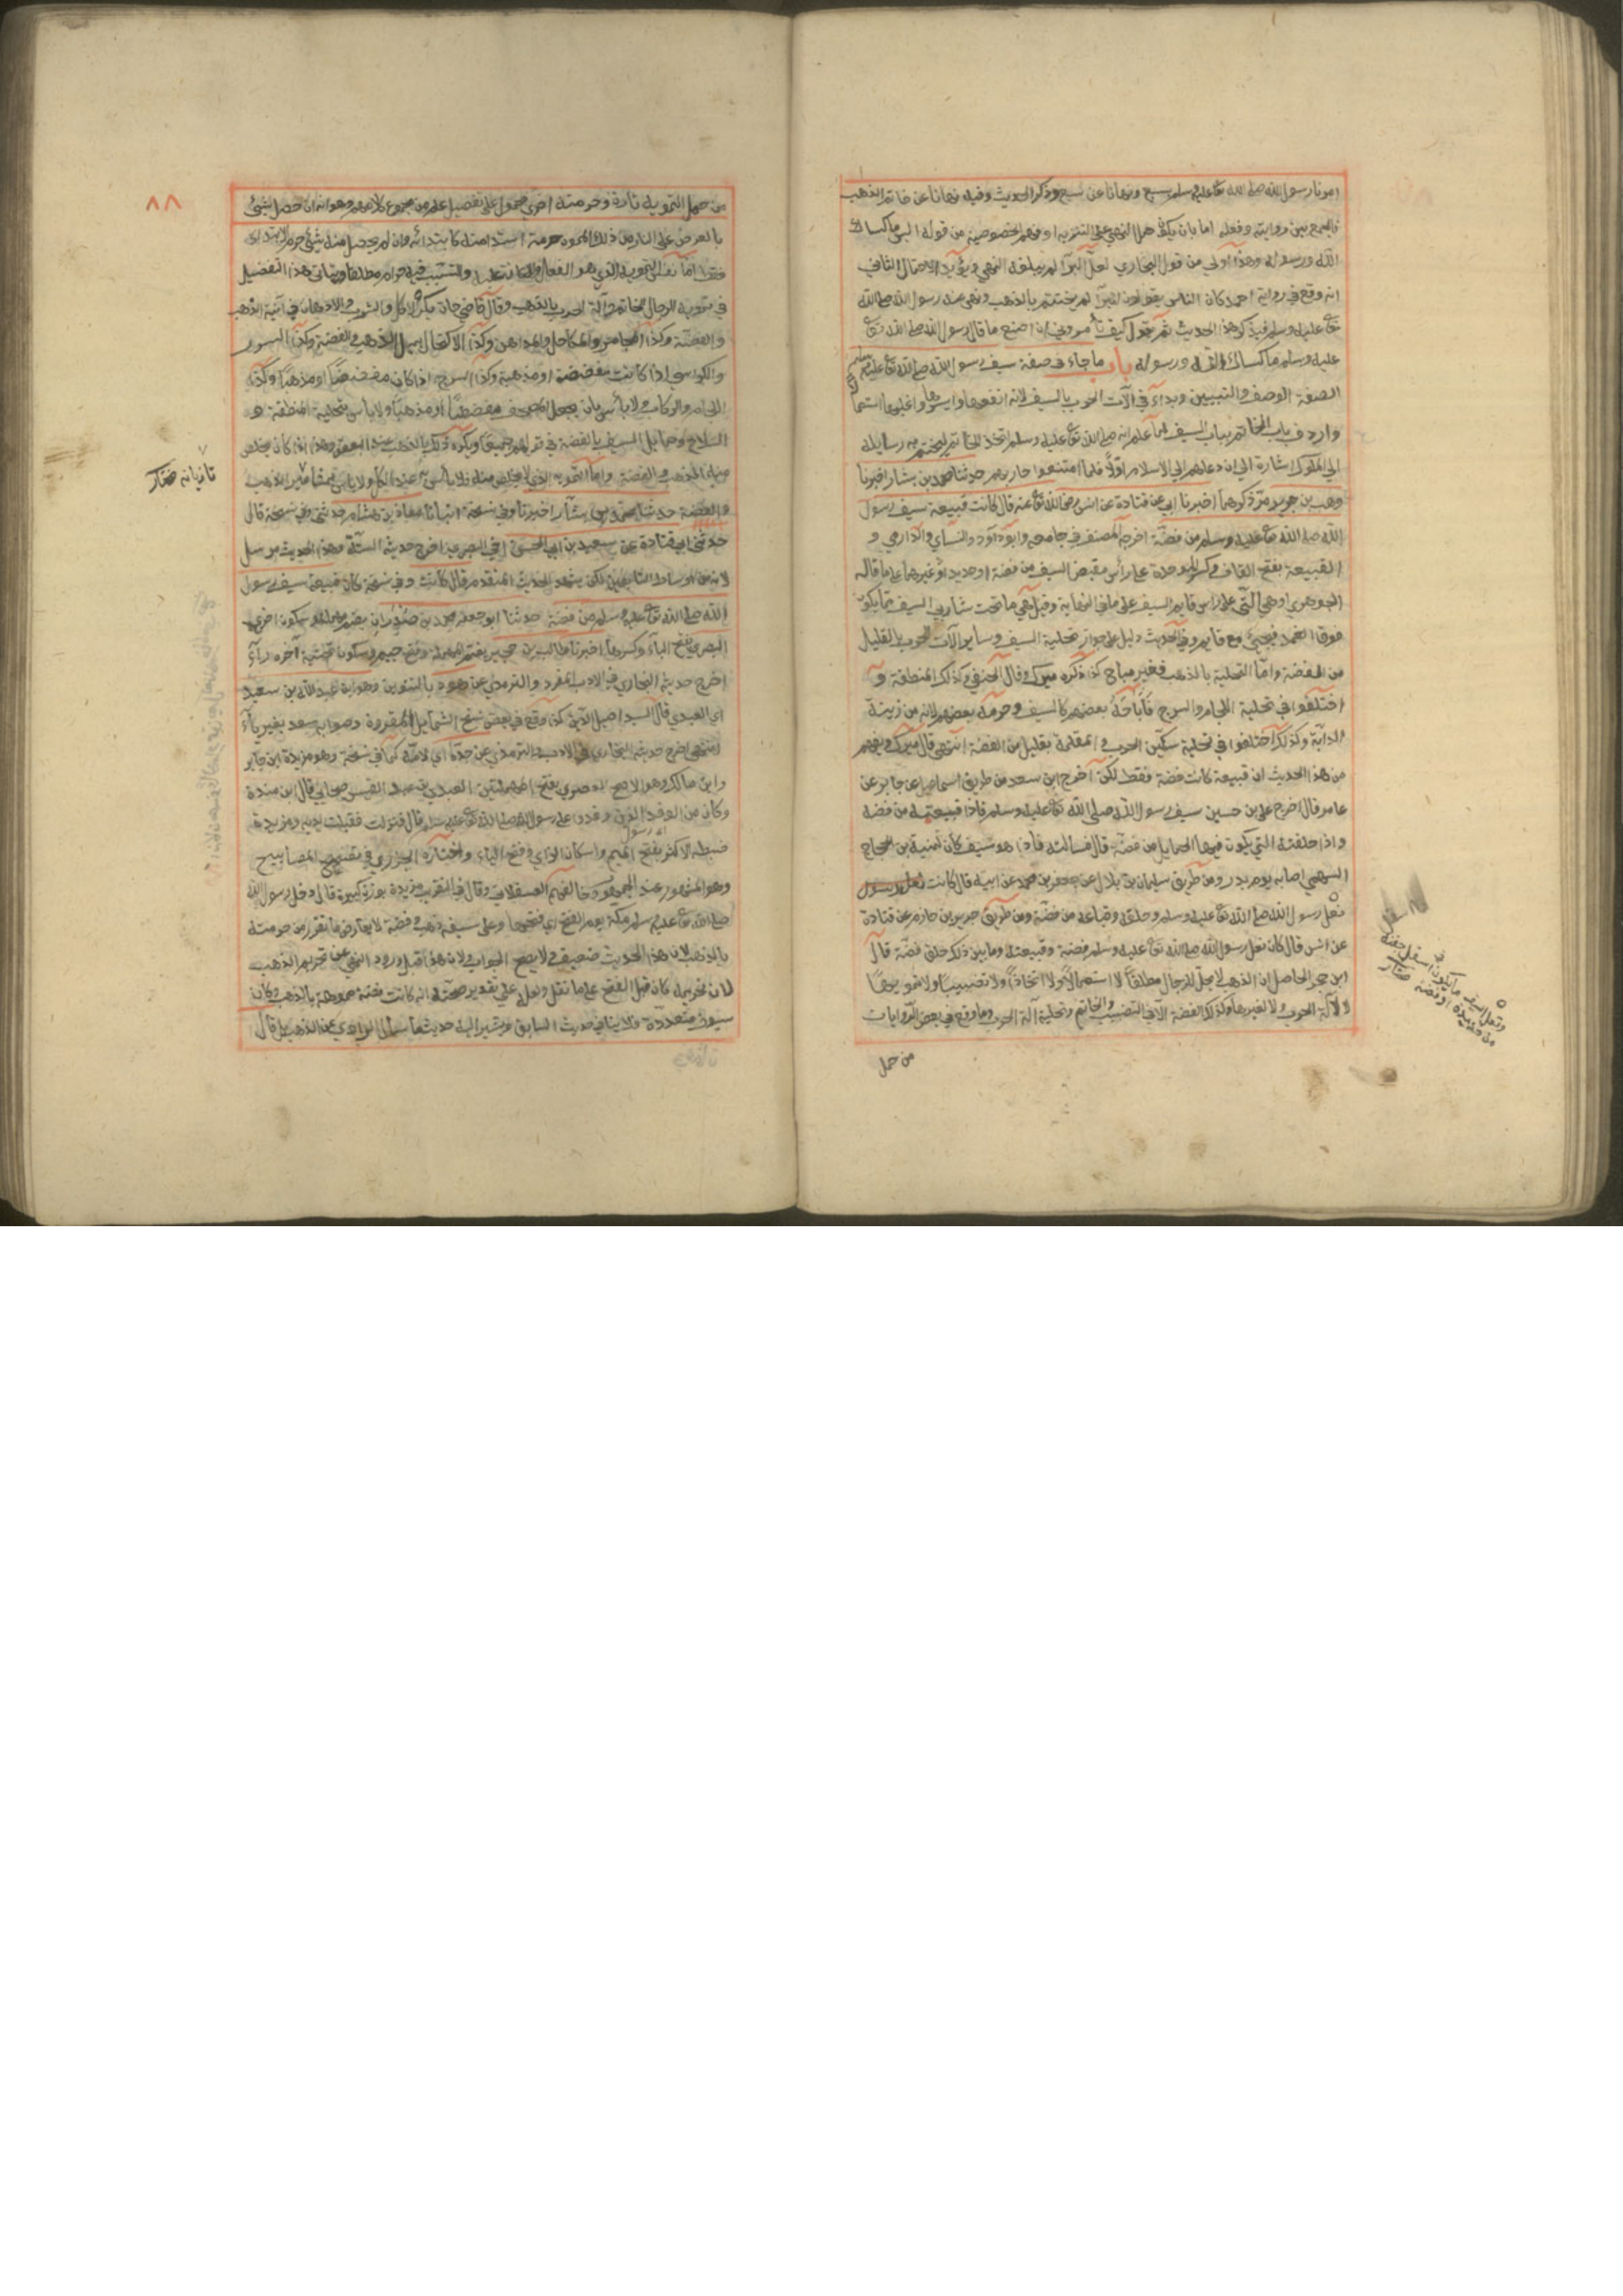 امرنا رسول الله صلى الله تعالى عليه وسلم بسبع ونهانا عن سبع وذكر الحديث وفيه نهانا عن خاتم الذهب
فالجمع بين روايته وفعله اما بان يكون حمل النهي على التنزيه او فهم الخصوصية من قوله البس ما كساك
الله ورسوله وهذا اولى من قول البخاري لعل البرآ لم يبلغه النهي ويؤيد الاحتمال الثاني
انه وقع في رواية احمد كان الناس يقولون للبرآ لم تختتم بالذهب ونهى عنه رسول الله صلى الله
تعالى عليه وسلم فيذكر هذا الحديث ثم يقول كيف تأمرونني ان اصنع ما قال رسول الله صلى الله تعالى
عليه وسلم ما كساك الله ورسوله باب ما جاء في صفة سيف رسول الله صلى الله تعالى عليه وسلم
الصفة الوصف والتبيين وبداء في آلات الحرب بالسيف لانه انفعها وايسرها واغلبها استعما
واردف باب الخاتم بباب السيف لما علم انه صلى الله تعالى عليه وسلم اتخذ الخاتم ليختم به رسايله
الى الملوك اشارة الى ان دعاهم الى الاسلام اولا فلما امتنعوا حاربهم حدثنا محمد بن بشار اخبرنا
وهب بن جرير مر ذكرهما اخبرنا ابي عن قتادة عن انس رضي الله تعالى عنه قال كانت قبيعة سيف رسول
الله صلى الله تعالى عليه وسلم من فضة اخرجه المصنف في جامعه وابو داود والنساي والدارمي و
القبيعة بفتح القاف وكسر الموحدة على رأس مقبض السيف من فضة او حديد او غيرهما على ما قاله
الجوهري وهي التي على راس قايم السيف على ما في النهاية وقيل هي ما تحت شاربي السيف مما يكون
فوق الغمد فيجيئ مع قايم وفي الحديث دليل على جواز تحلية السيف وساير آلات الحرب بالقليل
من الفضة واما التحلية بالذهب فغير مباح كذا ذكره ميرك وقال الحنفي وكذلك المنطقة و
اختلفوا في تحلية اللجام والسرج فأباحه بعضهم كالسيف وحرمه بعضهم لانه من زينة
الدابة وكذلك اختلفوا في تحلية سكين الحرب والمقلمة بقليل من الفضة انتهى قال ميرك ويفهم
من هذا الحديث ان قبيعة كانت فضة فقط لكن اخرج ابن سعد من طريق اسماعيل عن جابر عن
عامر قال اخرج علي بن حسين سيف رسول الله صلى الله تعالى عليه وسلم فاذا قبيعته من فضة
واذا حلقته التي يكون فيها الحمايل من فضة قال فسالته فاذا هو سيف كان لمنبه بن الحجاج
السهمي اصابه يوم بدر ومن طريق سليمان بن بلال عن جعفر بن محمد عن ابيه قال كانت
نعل رسول الله صلى الله تعالى عليه وسلم وحلقه وقباعه من فضة ومن طريق جرير بن حازم عن قتادة
عن انس قال كان نعل رسول الله صلى الله تعالى عليه وسلم فضة وقبيعته وما بين ذلك حلق فضة قال
ابن حجر الحاصل ان الذهب لا يحل للرجال مطلقا لا استعمالا ولا اتخاذا ولا تضبيبا ولا تمويها
لا لآلة الحرب ولا لغيرها وكذلك الفضة الا في التضبيب والخاتم وتحلية آلة الحرب وما وقع في بعض الروايات
من حمل
ونعل السيف ما يكون اسفل جفنه
من حديدة او فضة
٨٨
من حمل التمويه تارة وحرمته اخرى محمول على تفصيل علم من مجموع كلامهم وهو انه ان حصل شيئ
بالعرض على النار من ذلك المموه حرمة استدامته كابتدائه وان لم يحصل منه شيئ حرم الابتداء
فقط اما نفس التمويه الذي هو الفعل والاعانة عليه والتسبب فيه فحرام مطلقا ويتاتى هذا التفصيل
في تمويه الرجال للخاتم وآلة الحرب بالذهب وقال قاضي خان يكره الاكل والشرب والادهان في آنية الذهب
والفضة وكذا المجامر والمكاحل والمداهن وكذا الاكتحال بميل الذهب والفضة وكذا السرير
والكراسي اذا كانت مفضضة او مذهبة وكذا السرج اذا كان مفضضا او مذهبا وكذا
اللجام والركاب ولا بأس بان يجعل المصحف مفضضا او مذهبا ولا بأس بتحلية المنطقة و
السلاح وحمايل السيف بالفضة في قولهم جميعا ويكره ذلك بالذهب عند البعض وهذا اذا كان يخلص
منه الذهب والفضة واما التمويه الذي لا يخلص منه فلا بأس به عند الكل ولا باس بمسامير الذهب
والفضة حدثنا محمد بن بشار اخبرنا وفي نسخة انبانا معاذ بن هشام حدثني وفي نسخة قال
حدثني ابي عن قتادة عن سعيد بن ابي الحسن اخي البصري اخرج حديثه الستة وهذا الحديث مرسل
لانه من اوساط التابعين لكن يشهد الحديث المتقدم قال كانت وفي نسخة كان قبيعة سيف رسول
الله صلى الله تعالى عليه وسلم من فضة حدثنا ابو جعفر محمد بن صدران بضم مهملة وسكون اخرى
البصري بفتح الباء وكسرها اخبرنا طالب بن حجير بضم مهملة وفتح جيم وسكون تحتية آخره رآء
اخرج حديثه البخاري في الادب المفرد والترمذي عن هود بالتنوين وهو ابن عبد الله بن سعيد
اي العبدي قال السيد اصيل الدين كذا وقع في بعض نسخ الشمايل المقروة وصوابه سعد بغير ياء
انتهى اخرج حديثه البخاري في الادب والترمذي عن جده اي لامه كما في نسخة وهو مزيدة ابن جابر
وابن مالك وهو الاصح العصري بفتح المهملتين العبدي بن عبد القيس صحابي قال ابن مندة
وكان من الوفد الذين وفدوا على رسول الله صلى الله تعالى عليه وسلم قال فنزلت فقبلت يديه ومزيدة
ضبطه الاكثر بفتح الميم واسكان الزاي وفتح الياء واختاره الجزري في تصحيح المصابيح
وهو المشهور عند الجمهور وخالفهم العسقلاني وقال في التقريب مزيدة بوزن كبيرة قال دخل رسول الله
صلى الله تعالى عليه وسلم مكة يوم الفتح اي فتحها وعلى سيفه ذهب وفضة لا يعارض ما تقرر من حرمته
بالذهب لان هذا الحديث ضعيف ولا يصح الجواب ولان هذا قبل ورود النهي عن تحريم الذهب
لان تحريمه كان قبل الفتح على ما نقل ولعله على تقدير صحته انه كانت فضة مموهة بالذهب وكان
سيوف متعددة فلا ينافي حديث السابق ويشير اليه حديثه سال الراوي عن الذهب بل قال